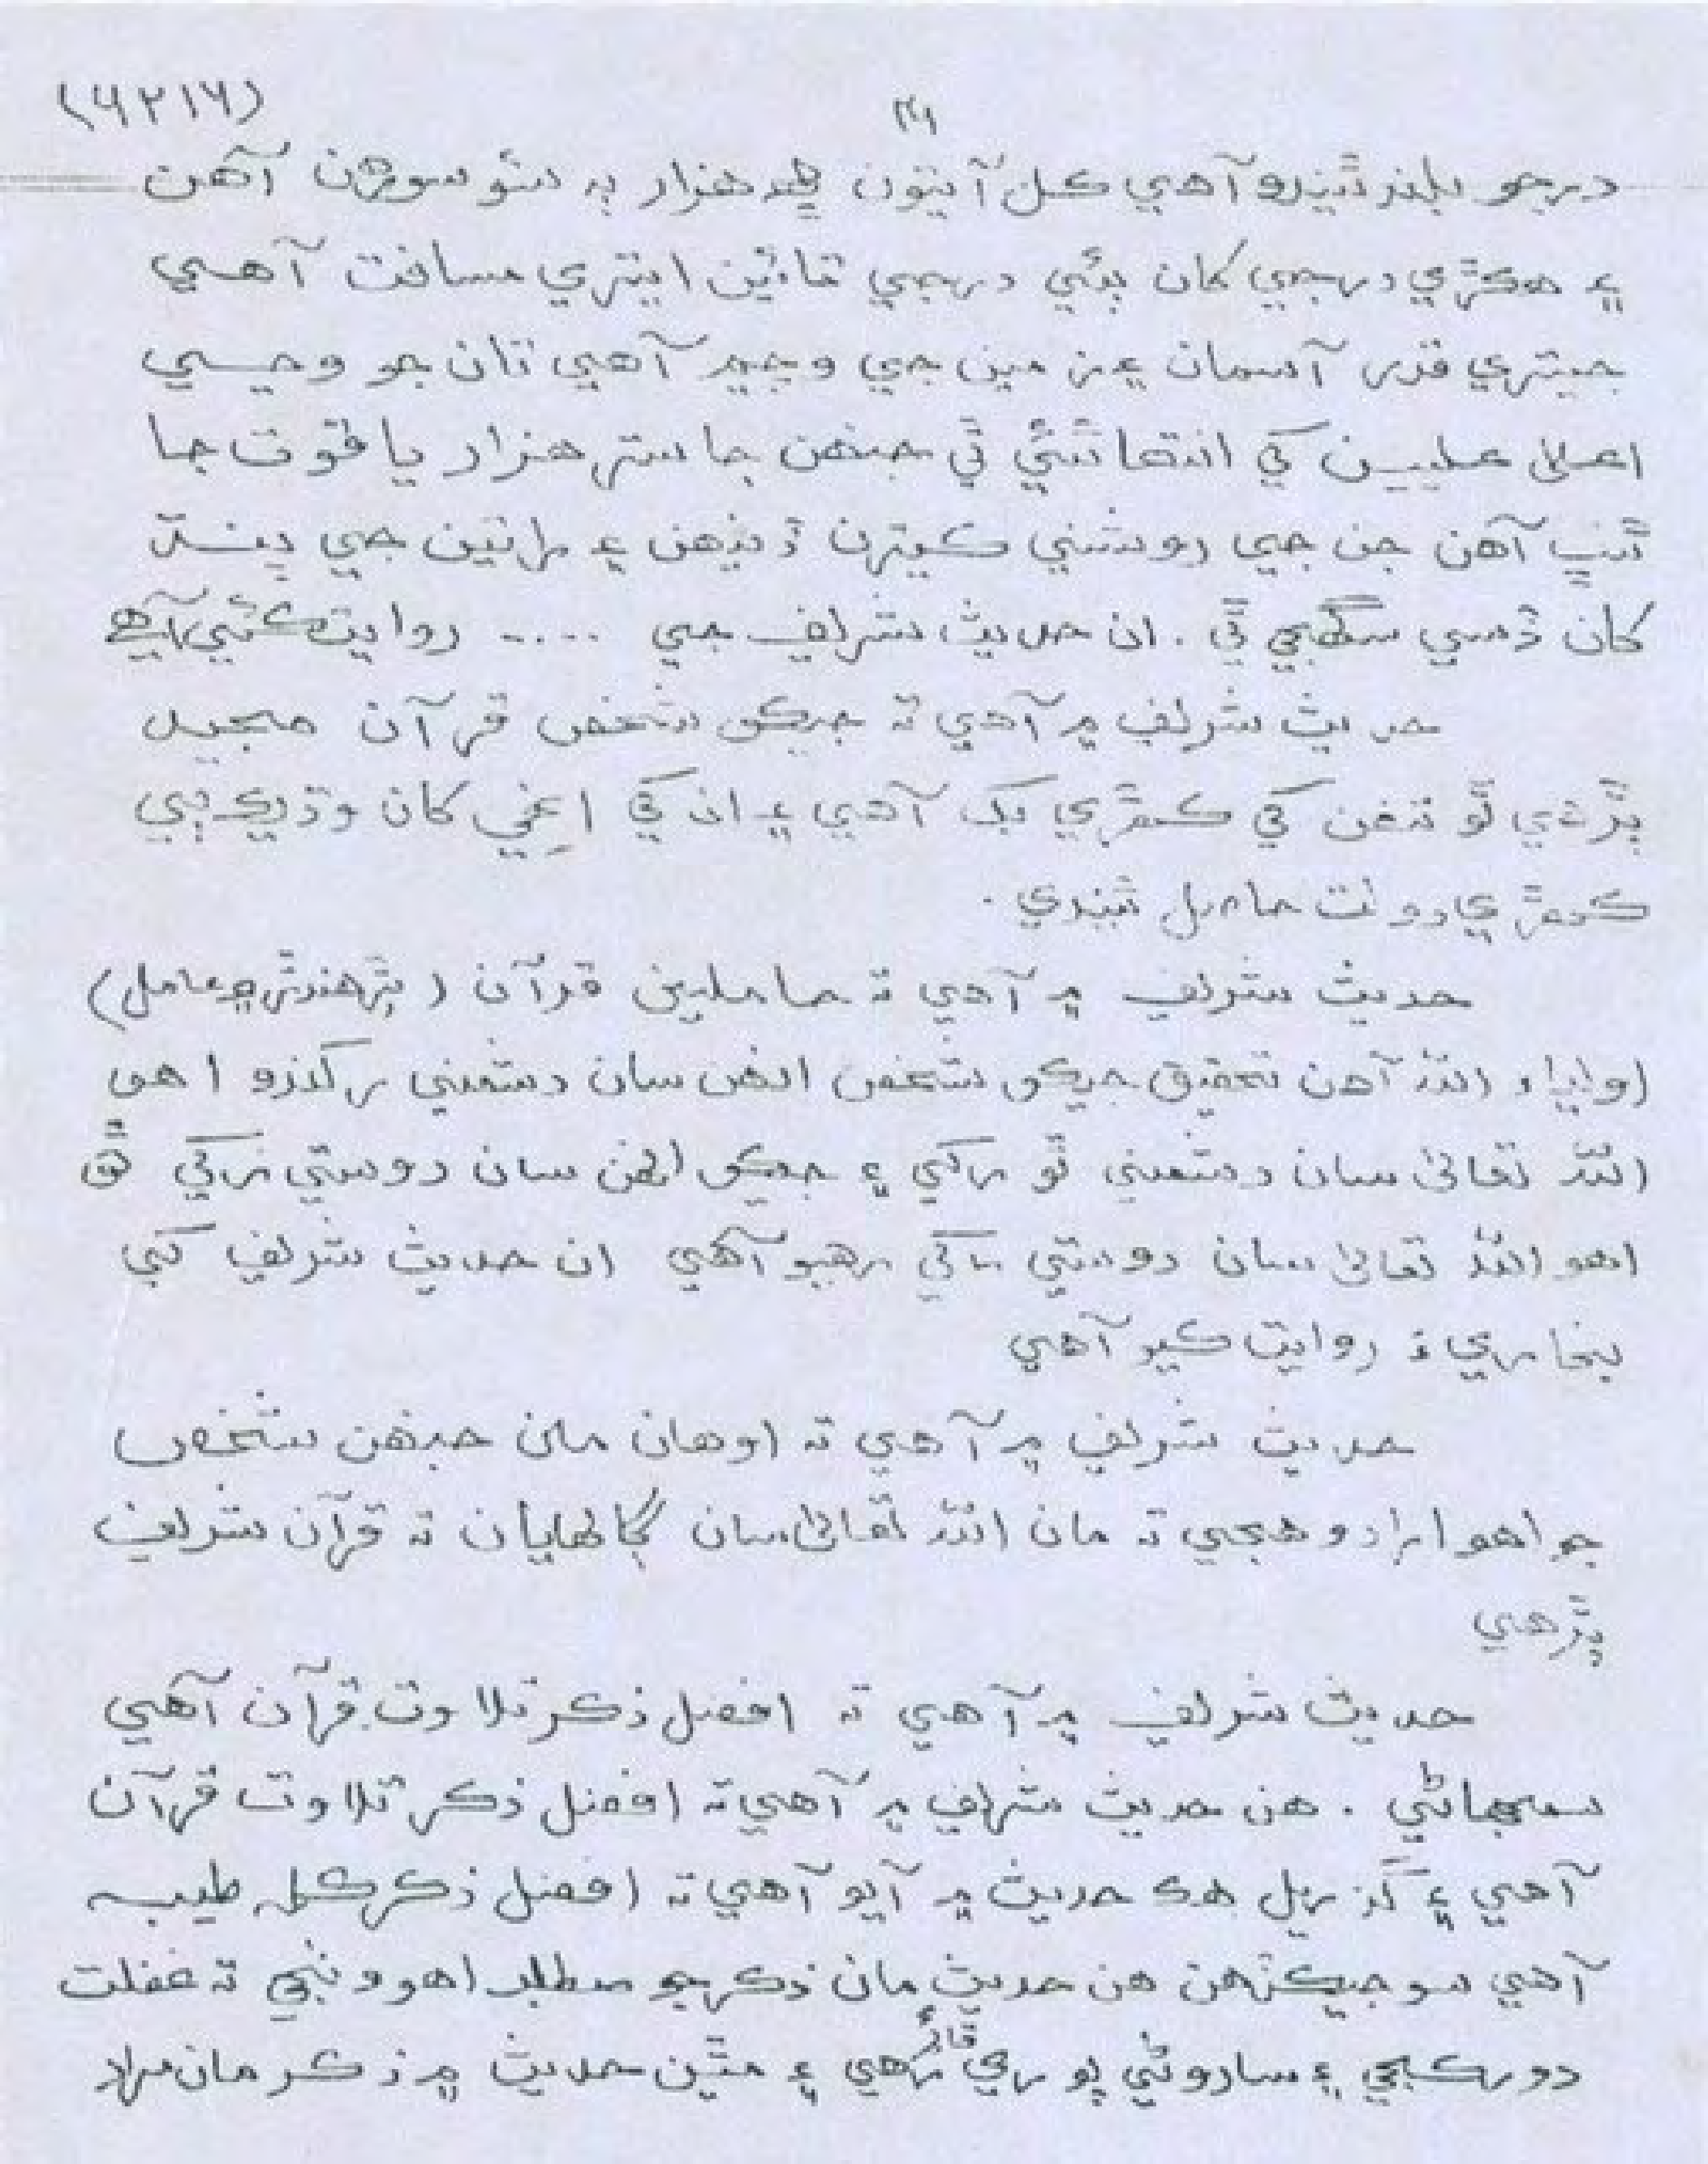 (٦٢١٦)
درجو بلند ٿيندو آهي ڪل آيتون ڇھ هزار به سئو سورهن آهن
۽ هڪڙي درجي کان ٻئي درجي تائين ايتري مسافت آهي
جيتري قدر آسمان ۽ زمين جي وچ ۾ آهي تان جو وڃي
اعلیٰ عليين کي انتها ٿئي ٿي جنهن جا ستر هزار ياقوت جا
ٿنڀ آهن جن جي روشني ڪيترن ڏينهن ۽ راتين جي پنڌ
کان ڏسي سگهجي ٿي . ان حديث شريف جي .... روايت ڪئي آهي
حديث شريف ۾ آهي ته جيڪو شخص قرآن مجيد
پڙهي ٿو تنهن کي ڪهڙي آهي ۽ ان کي کان وڌيڪ ٻي
ڪهڙي دولت حاصل ٿيندي .
حديث شريف ۾ آهي ته حاملين قرآن ( پڙهندڙ ۽ عامل)
اولياء الله آهن تحقيق جيڪو شخص انهن سان دشمني رکندو اهو
الله تعالیٰ سان دشمني ٿو رکي ۽ جيڪو انهن سان دوستي رکي ٿو
اهو الله تعالیٰ سان دوستي رکي رهيو آهي ان حديث شريف کي
بخاري ؒ روايت ڪيو آهي
حديث شريف ۾ آهي ته اوهان مان جنهن شخص
جو اهو ارادو هجي ته مان الله تعالیٰ سان ڳالهايان ته قرآن شريف
پڙهي
حديث شريف ۾ آهي ته افضل ذڪر تلاوت قرآن آهي
سمجهاڻي . هن حديث شريف ۾ آهي ته افضل ذڪر تلاوت قرآن
آهي ۽ گذريل هڪ حديث ۾ آيو آهي ته افضل ذڪر ڪلمه طيبه
آهي سو جيڪڏهن هن حديث مان ذڪر جو مطلب اهو وٺجي ته غفلت
دور ڪجي ۽ ساروڻي رهي ۽ مٿين حديث ۾ ذڪر مان مراد